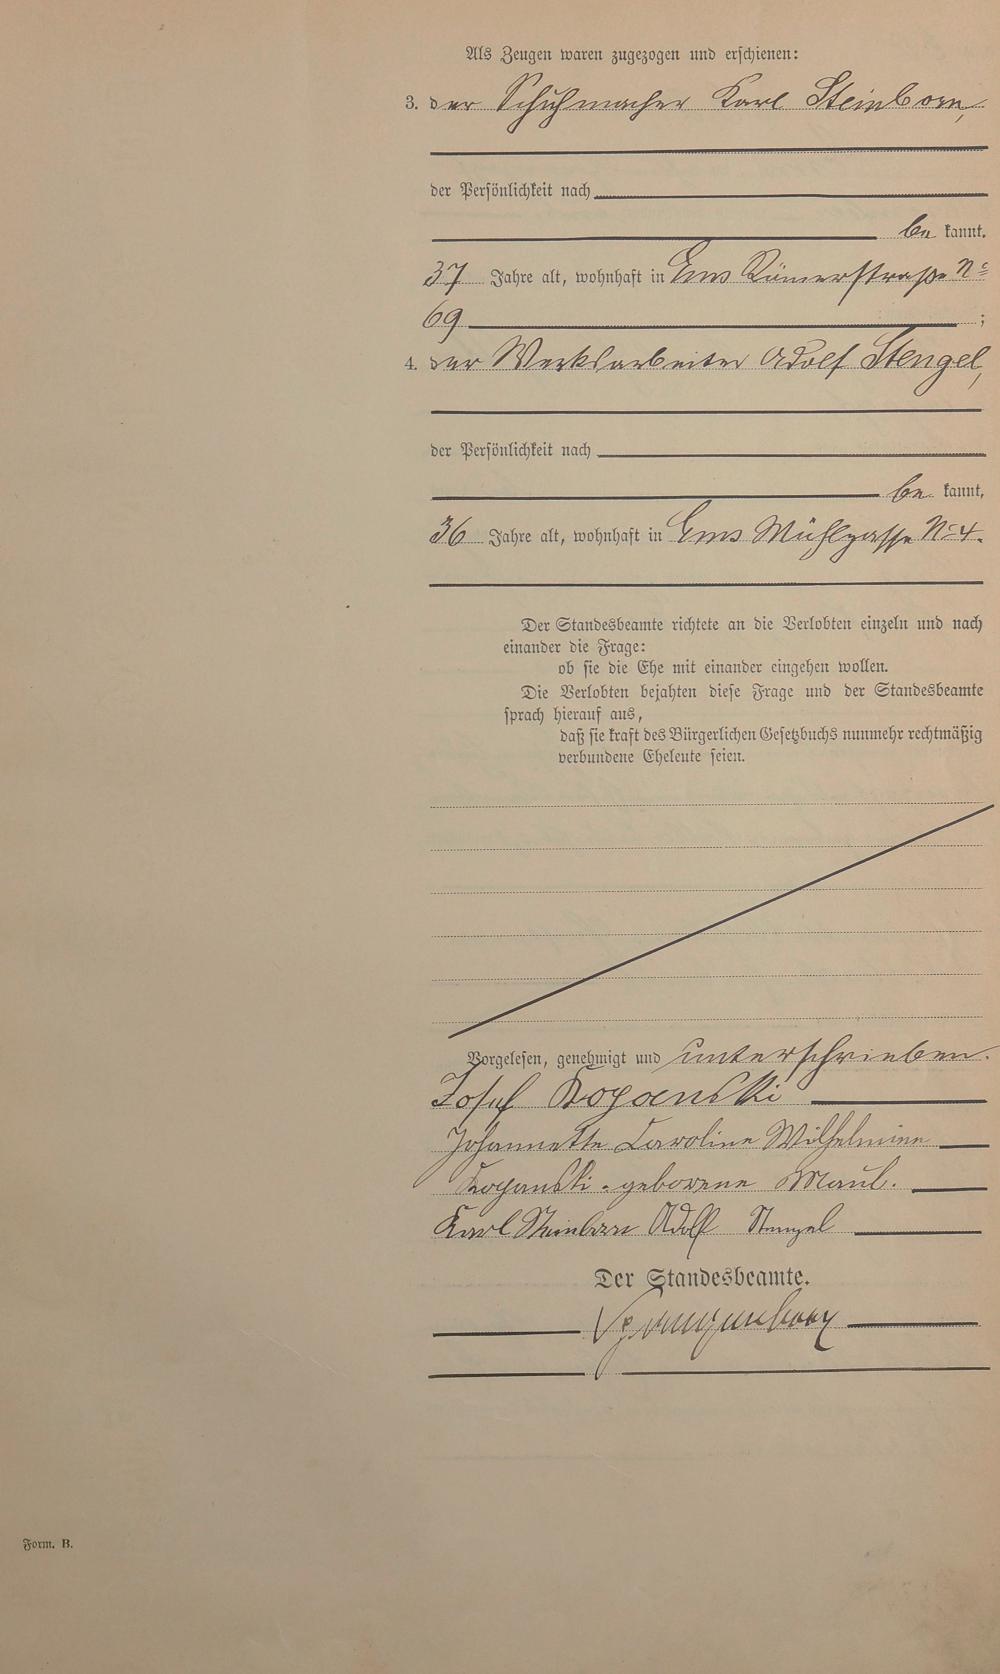 Als Zeugen waren zugezogen und erschienen:
3. der Schuhmacher Karl Steinborn,
der Persönlichkeit nach
be kannt,
37 Jahre alt, wohnhaft in Ems Römerstraße No
69 ;
4. der Werksarbeiter Adolf Stengel,
der Persönlichkeit nach
be kannt,
36 Jahre alt, wohnhaft in Ems Mühlgasse No 4.
Der Standesbeamte richtete an die Verlobten einzeln und nach
einander die Frage:
ob sie die Ehe mit einander eingehen wollen.
Die Verlobten bejahten diese Frage und der Standesbeamte
sprach hierauf aus,
daß sie kraft des Bürgerlichen Gesetzbuchs nunmehr rechtmäßig
verbundene Eheleute seien.
Vorgelesen, genehmigt und unterschrieben.
Josef Roganski
Johannette Caroline Wilhelmine
Roganski geborene Maul.
Karl Steinborn Adolf Stengel
Der Standesbeamte.
Form. B.